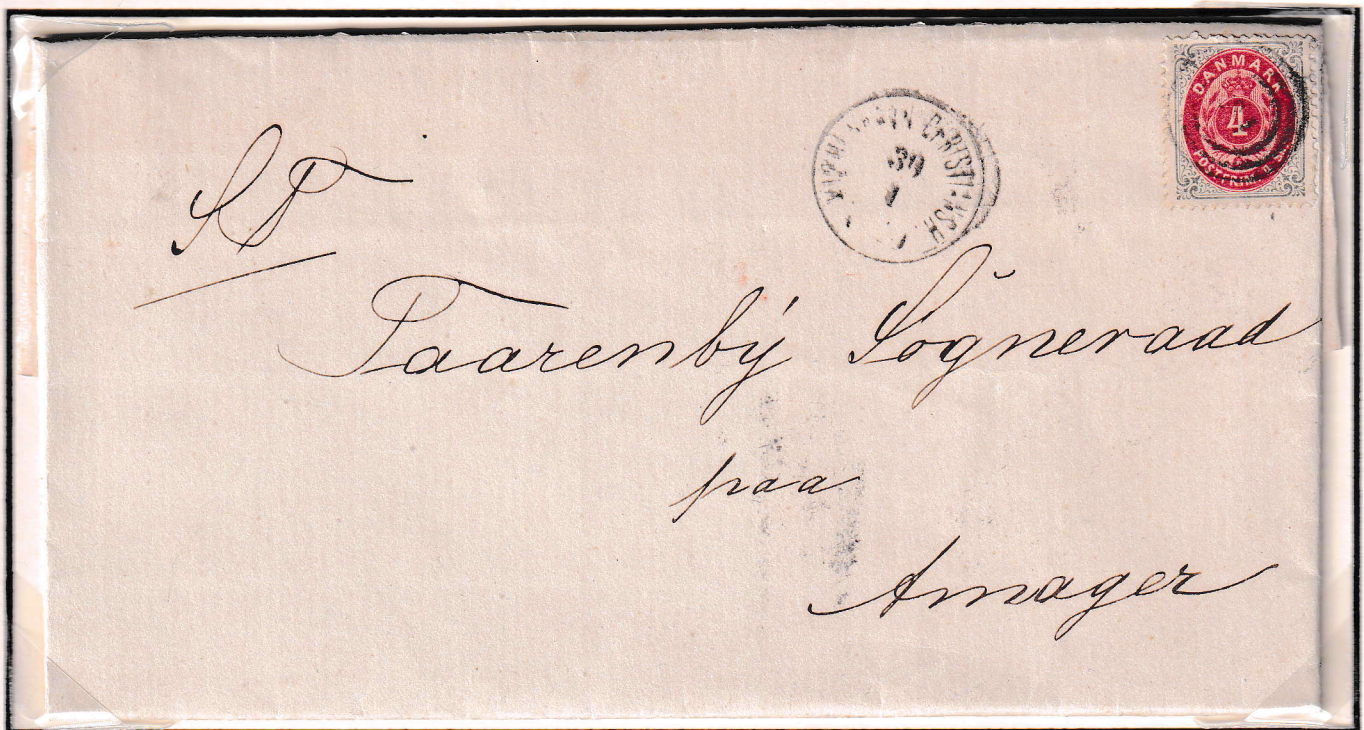 DANMARK
4
POSTFRIM.
CHRISTIANSH.
30
1
S. T.
Taarenbÿ Sogneraad
paa
Amager